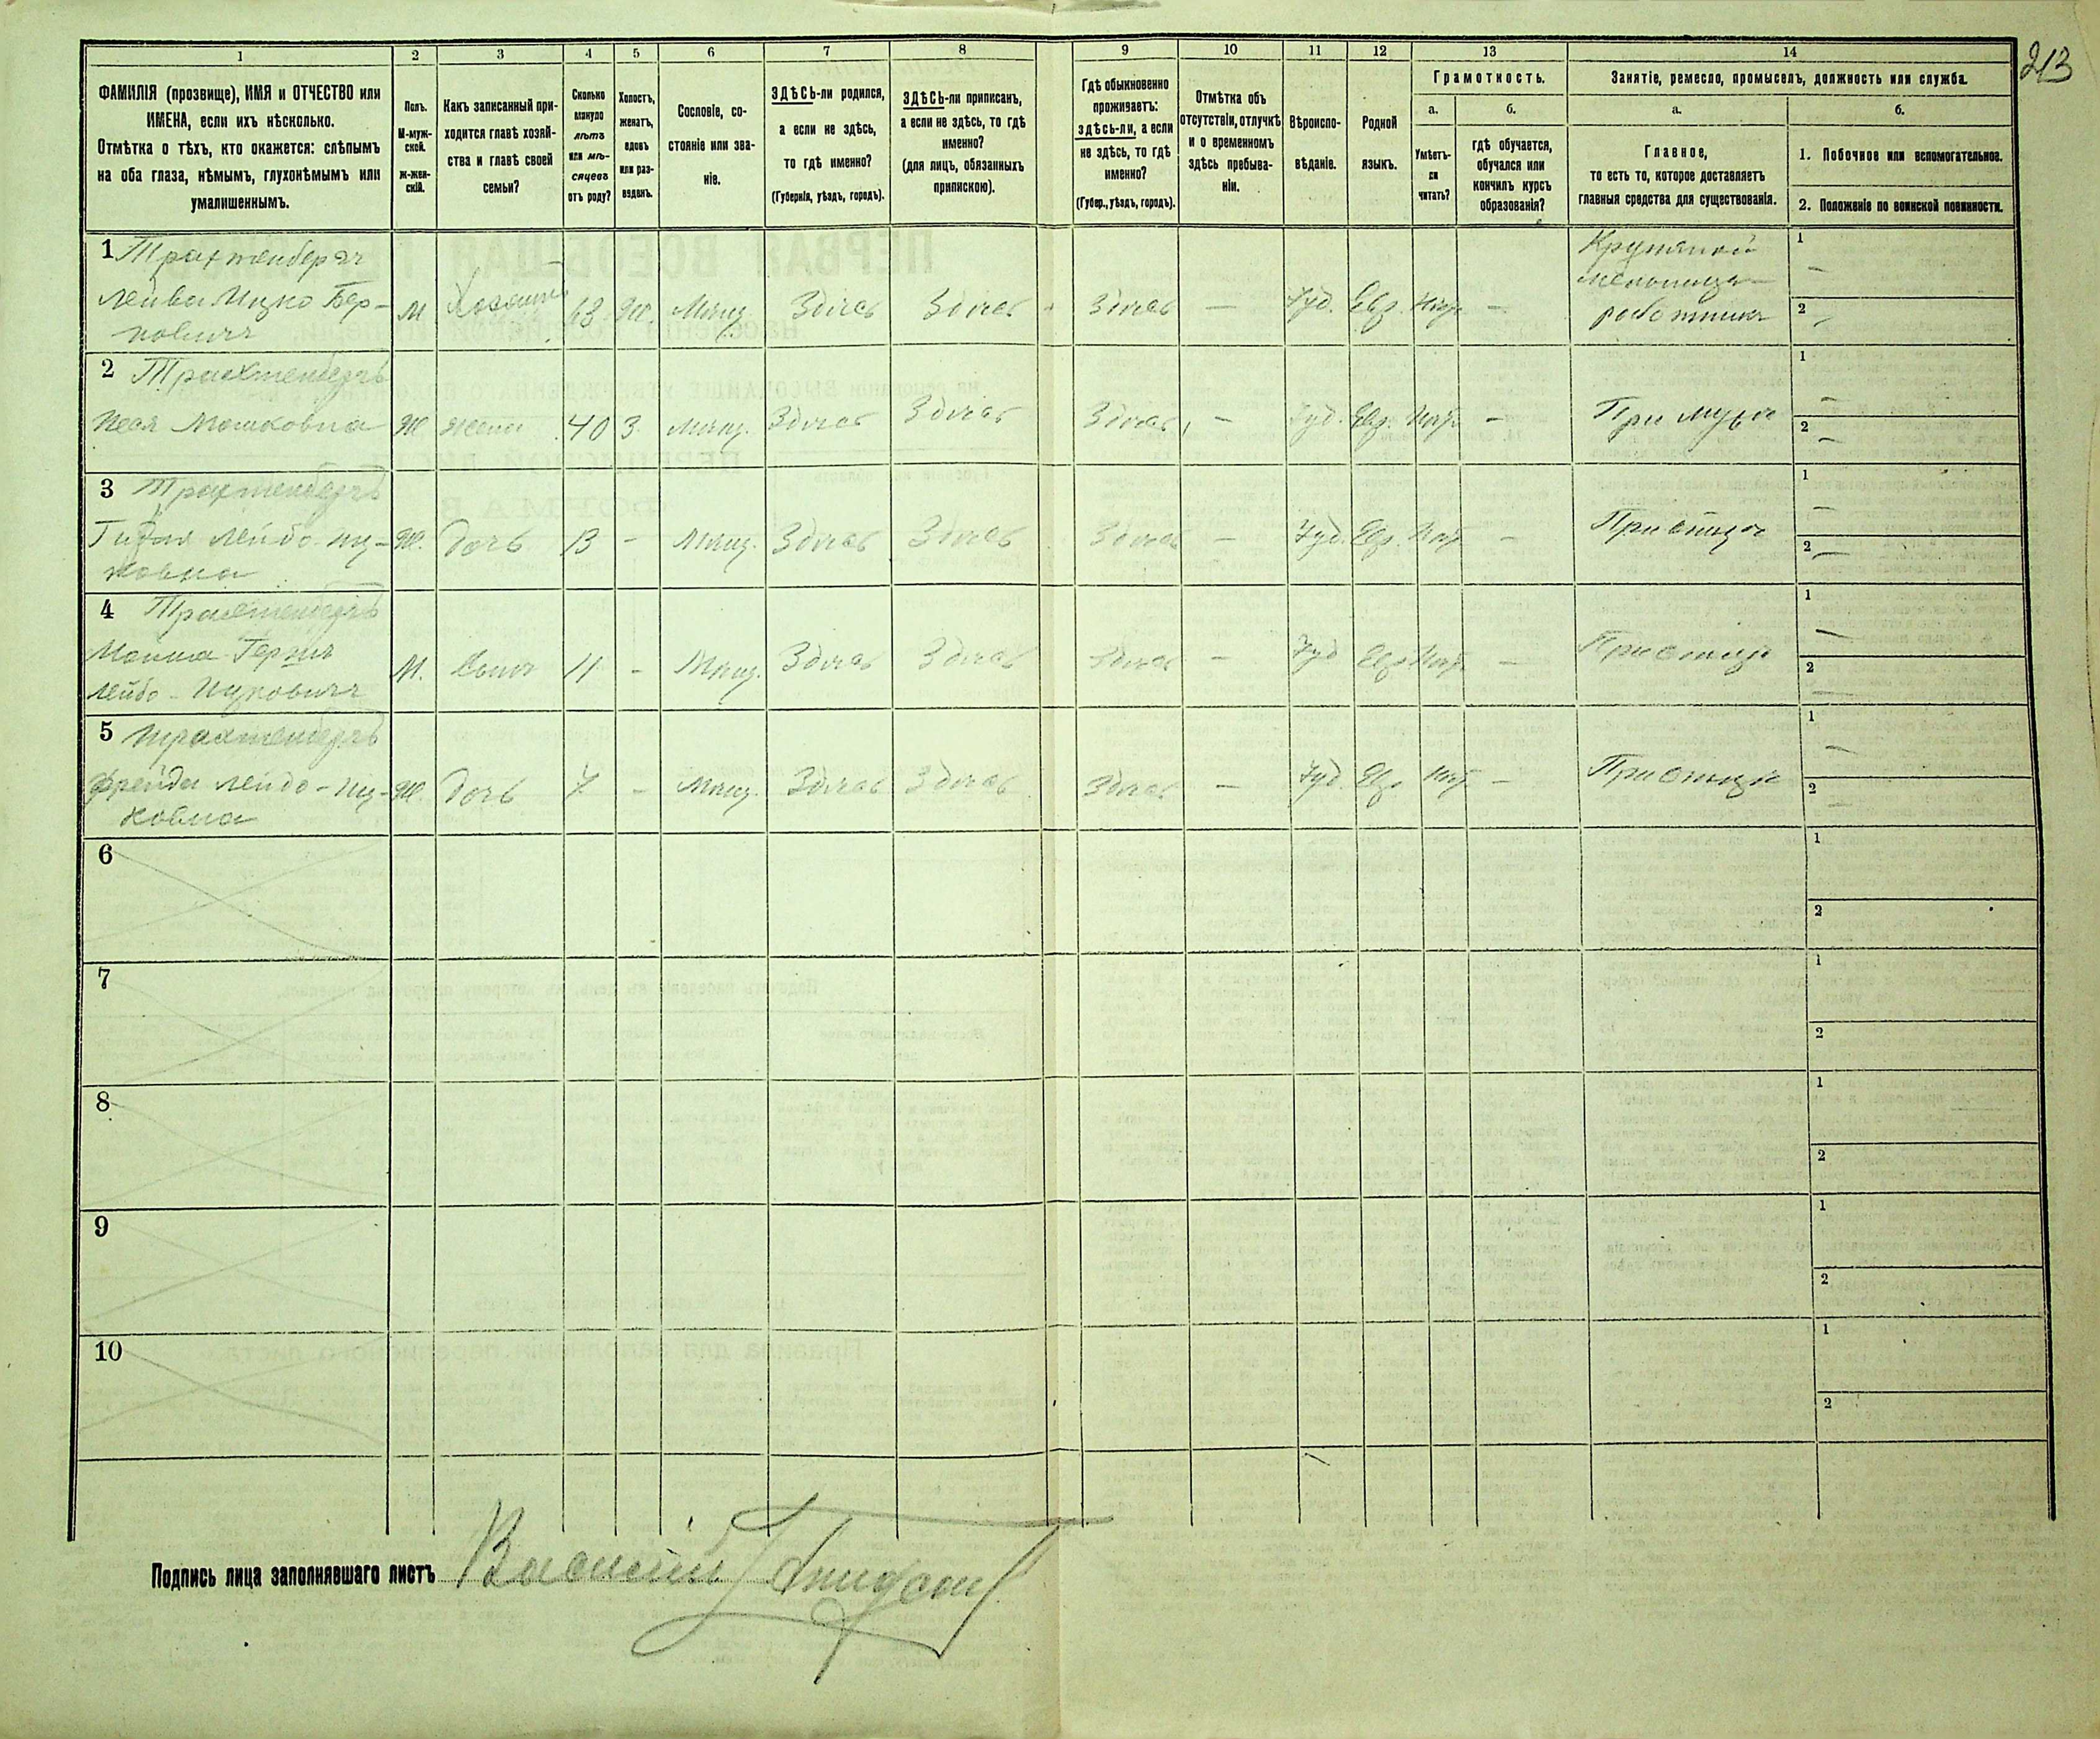 213
1 2 3 4 5 6 7 8 9 10 11 12 13 14
ФАМИЛІЯ (прозвище), ИМЯ и ОТЧЕСТВО или
ИМЕНА, если ихъ нѣсколько.
Отмѣтка о тѣхъ, кто окажется: слѣпымъ
на оба глаза, нѣмымъ, глухонѣмымъ или
умалишеннымъ.
Полъ.
М-муж-
ской.
Ж-жен-
скій.
Какъ записанный при-
ходится главѣ хозяй-
ства и главѣ своей
семьи?
Сколько
минуло
лѣтъ
или мѣ-
сяцевъ
отъ роду?
Холостъ,
женатъ,
вдовъ
или раз-
веденъ.
Сословіе, со-
стояніе или зва-
ніе.
ЗДѢСЬ-ли родился,
а если не здѣсь,
то гдѣ именно?
(Губернія, уѣздъ, городъ).
ЗДѢСЬ-ли приписанъ,
а если не здѣсь, то гдѣ
именно?
(для лицъ, обязанныхъ
припискою).
Гдѣ обыкновенно
проживаетъ:
здѣсь-ли, а если
не здѣсь, то гдѣ
именно?
(Губер., уѣздъ, городъ).
Отмѣтка объ
отсутствіи, отлучкѣ
и о временномъ
здѣсь пребыва-
ніи.
Вѣроиспо-
вѣданіе.
Родной
языкъ.
Грамотность.
а.
Умѣетъ-
ли
читать?
б.
гдѣ обучается,
обучался или
кончилъ курсъ
образованія?
Занятіе, ремесло, промыселъ, должность или служба.
а.
Главное,
то есть то, которое доставляетъ
главныя средства для существованія.
б.
1. Побочное или вспомогательное.
2. Положеніе по воинской повинности.
1 Трахтенбергъ
Лейба Ицко Бер-
ковичъ
М Хозяинъ 63 Ж Мѣщ. Здѣсь Здѣсь Здѣсь — Іуд. Евр. Нѣт —
Крупяной
мельницы
работникъ
1 —
2 —
2 Трахтенбергъ
Песя Мошковна Ж Жена 40 З Мѣщ. Здѣсь Здѣсь Здѣсь — Іуд. Евр. Нѣт — При мужѣ
1 —
2 —
3 Трахтенбергъ
Лейбо-Иц-
ковна
Ж. Дочь 13 - Мѣщ. Здѣсь Здѣсь Здѣсь — Іуд. Евр. Нѣт — При отцѣ
1 —
2 —
4 Трахтенбергъ
Лейбо-Ицковичъ
М. Сынъ 11 - Мѣщ. Здѣсь Здѣсь Здѣсь — Іуд Евр Нѣт — При отцѣ
1 —
2 —
5 Трахтенбергъ
Фрейда Лейбо-Иц-
ковна
Ж. Дочь 7 - Мѣщ. Здѣсь Здѣсь Здѣсь — Іуд. Евр Нѣт — При отцѣ
1 —
2 —
6 1
2
7 1
2
8 1
2
9 1
2
10 1
2
Подпись лица заполнявшаго листъ Василій